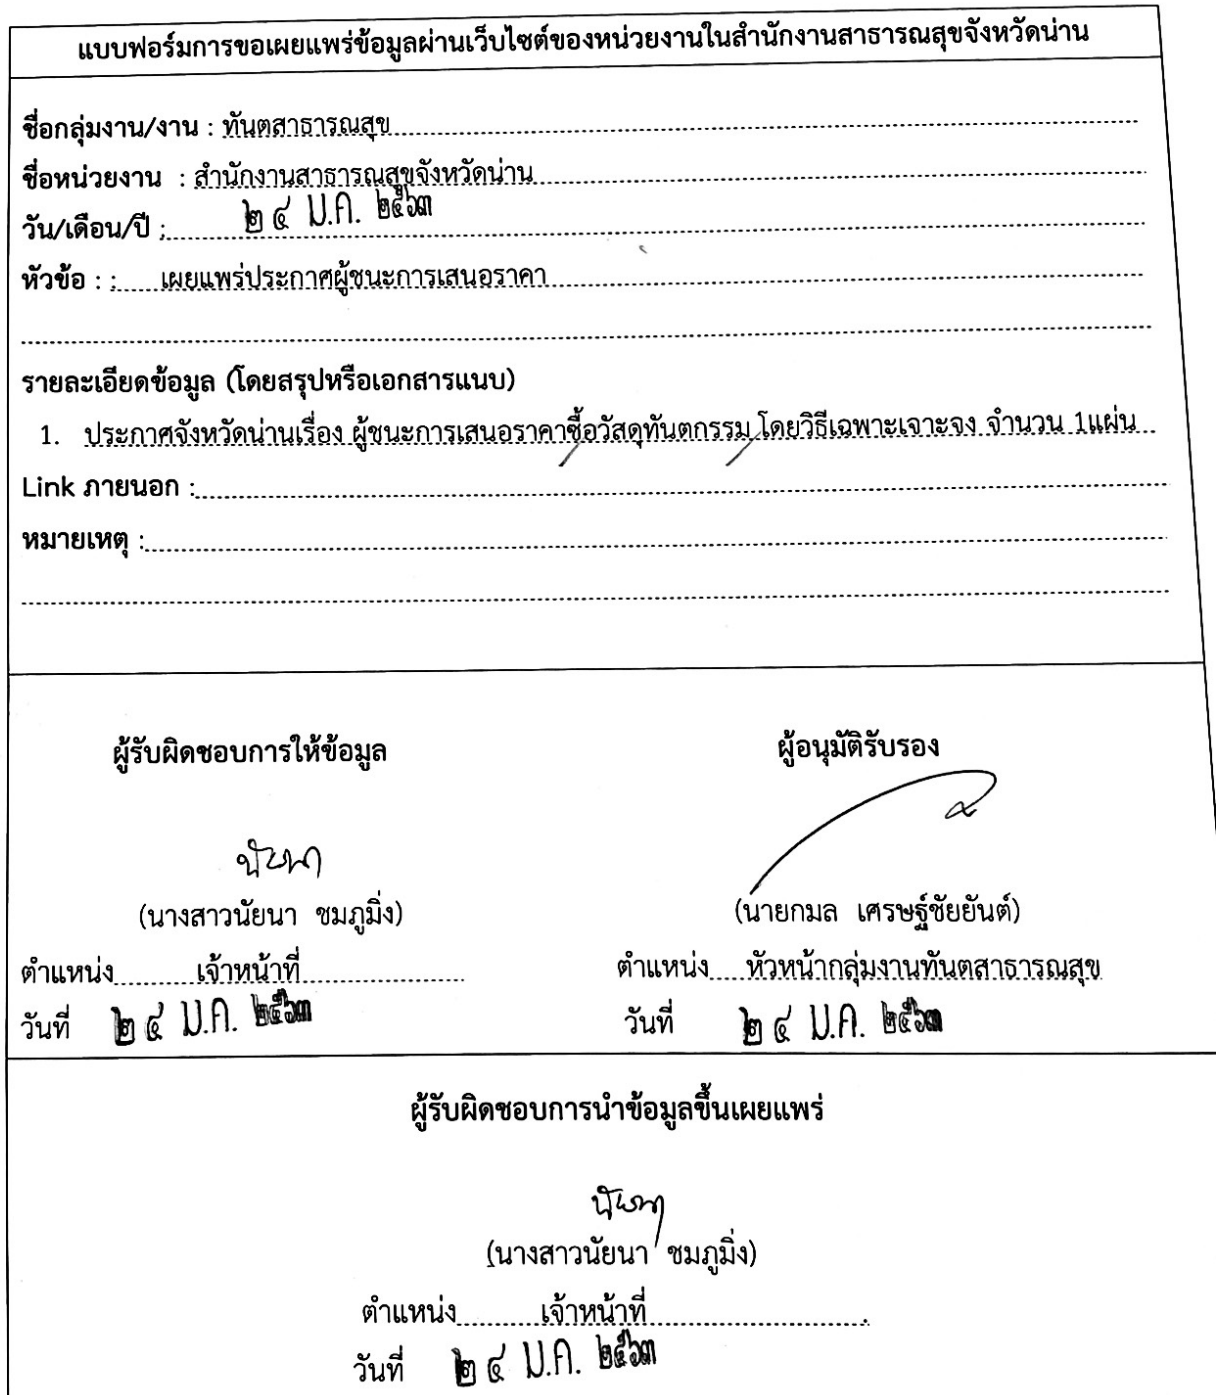 แบบฟอร์มการขอเผยแพร่ข้อมูลผ่านเว็บไซต์ของหน่วยงานในสำนักงานสาธารณสุขจังหวัดน่าน
ชื่อกลุ่มงาน/งาน : ทันตสาธารณสุข
ชื่อหน่วยงาน : สำนักงานสาธารณสุขจังหวัดน่าน
วัน/เดือน/ปี : ๒๔ ม.ค. ๒๕๖๓
หัวข้อ : : เผยแพร่ประกาศผู้ชนะการเสนอราคา
รายละเอียดข้อมูล (โดยสรุปหรือเอกสารแนบ)
1. ประกาศจังหวัดน่านเรื่อง ผู้ชนะการเสนอราคาซื้อวัสดุทันตกรรม โดยวิธีเฉพาะเจาะจง จำนวน 1แผ่น
Link ภายนอก :
หมายเหตุ :
ผู้รับผิดชอบการให้ข้อมูล
ผู้อนุมัติรับรอง
นัยนา
(นางสาวนัยนา ชมภูมิ่ง)
(นายกมล เศรษฐ์ชัยยันต์)
ตำแหน่ง เจ้าหน้าที่
ตำแหน่ง หัวหน้ากลุ่มงานทันตสาธารณสุข
วันที่ ๒๔ ม.ค. ๒๕๖๓
วันที่ ๒๔ ม.ค. ๒๕๖๓
ผู้รับผิดชอบการนำข้อมูลขึ้นเผยแพร่
นัยนา
(นางสาวนัยนา ชมภูมิ่ง)
ตำแหน่ง เจ้าหน้าที่
วันที่ ๒๔ ม.ค. ๒๕๖๓